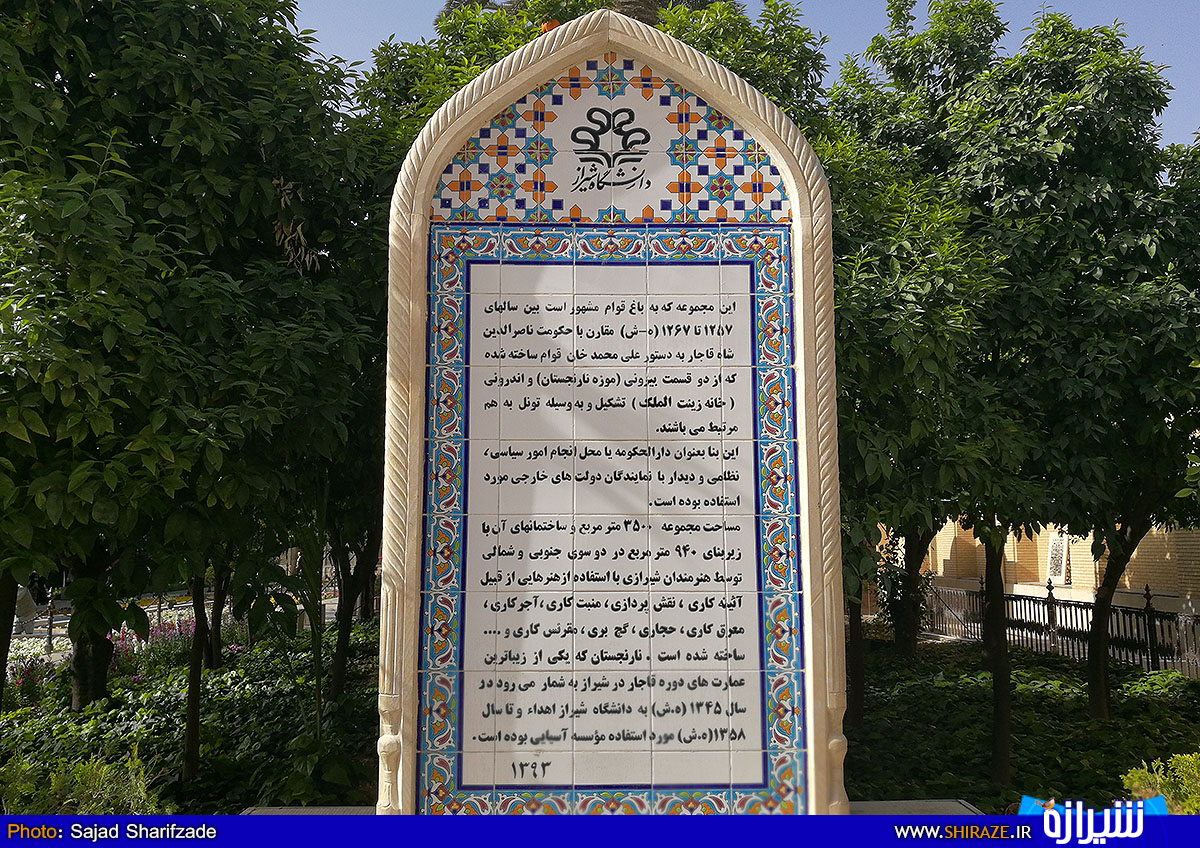 دانشگاه شیراز
این مجموعه که به باغ قوام مشهور است بین سالهای
۱۲۵۷ تا ۱۲۶۷ (ه-ش) مقارن با حکومت ناصرالدین
شاه قاجار به دستور علی محمد خان قوام ساخته شده
که از دو قسمت بیرونی (موزه نارنجستان) و اندرونی
( خانه زینت الملک ) تشکیل و به وسیله تونل به هم
مرتبط می باشند.
این بنا بعنوان دارالحکومه یا محل انجام امور سیاسی،
نظامی و دیدار با نمایندگان دولت های خارجی مورد
استفاده بوده است .
مساحت مجموعه ۳۵۰۰ متر مربع و ساختمانهای آن با
زیربنای ۹۴۰ متر مربع در دو سوی جنوبی و شمالی
توسط هنرمندان شیرازی با استفاده از هنرهایی از قبیل
آئینه کاری ، نقش پردازی ، منبت کاری ،آجرکاری ،
معرق کاری ، حجاری ، گچ بری ، مقرنس کاری و ....
ساخته شده است . نارنجستان که یکی از زیباترین
عمارت های دوره قاجار در شیراز به شمار می رود در
سال ۱۳۴۵ (ه.ش) به دانشگاه شیراز اهداء و تا سال
۱۳۵۸(ه.ش) مورد استفاده مؤسسه آسیایی بوده است.
۱۳۹۳
Photo: Sajad Sharifzade
WWW.SHIRAZE.IR
شیرازه